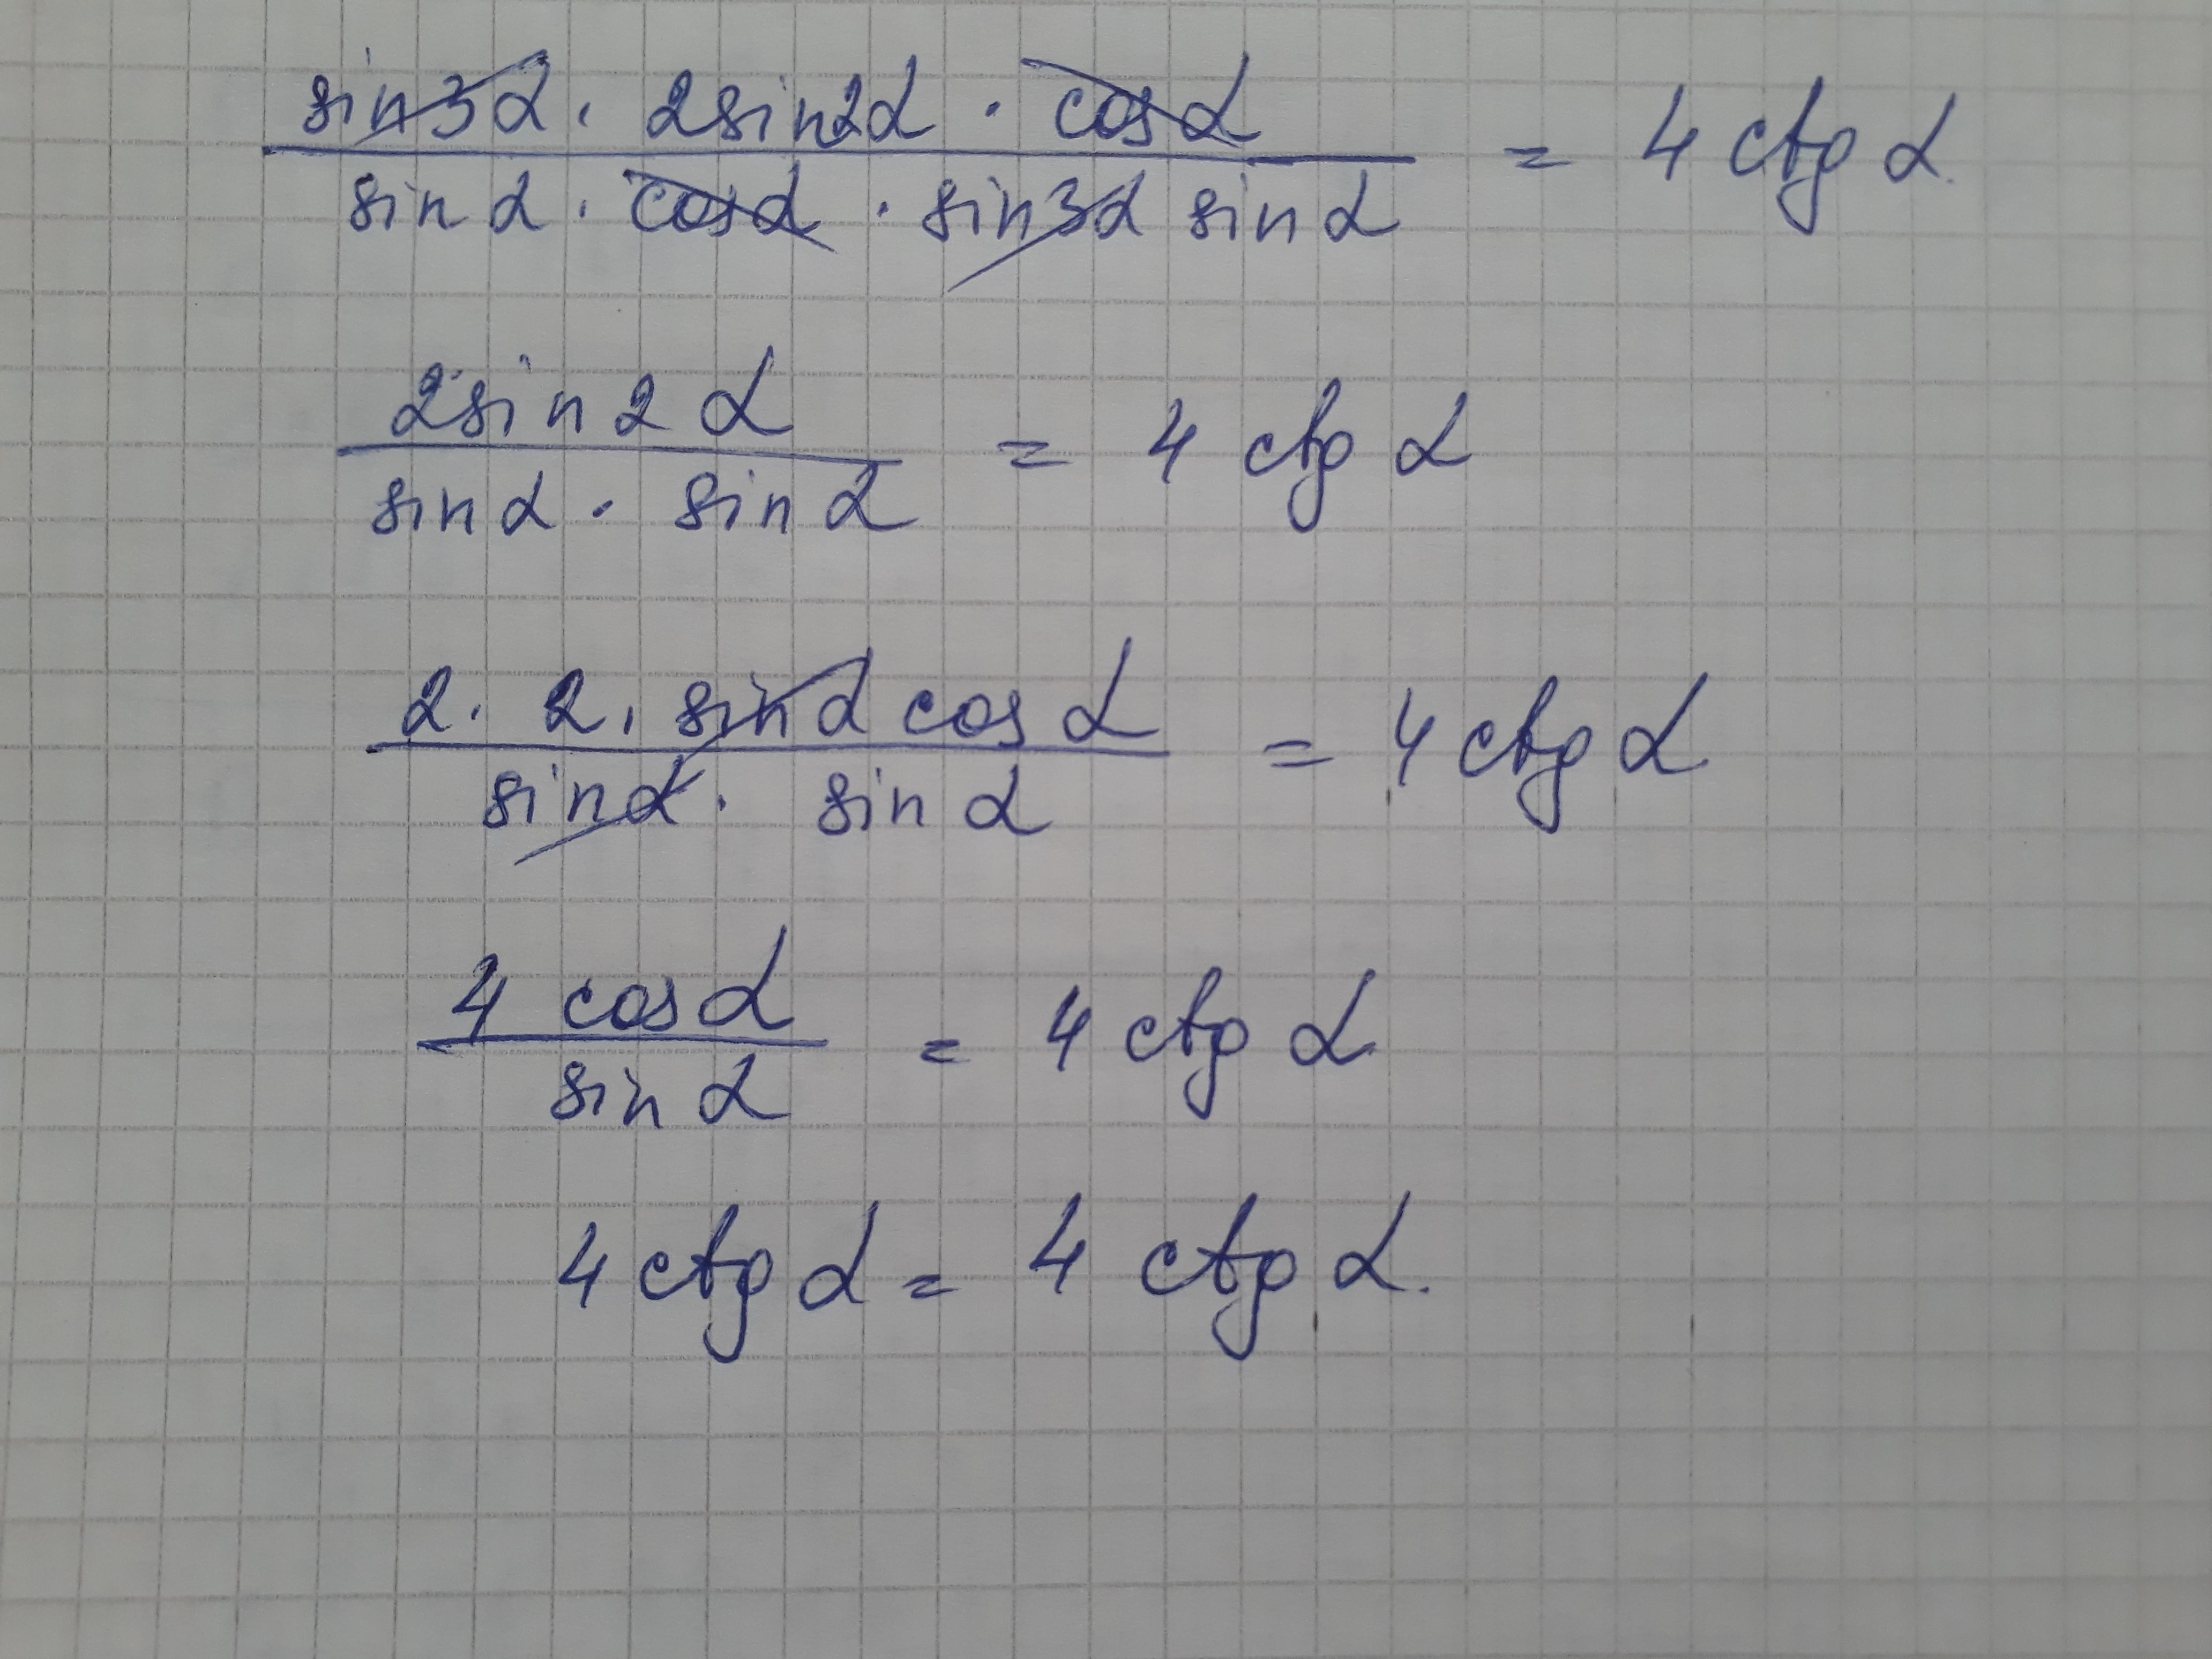 sin3α · 2sin2α · cosα / sinα · cosα · sin3α sinα = 4 ctg α
2sin2α / sinα · sinα = 4 ctg α
2 · 2 · sinα cosα / sinα · sinα = 4 ctg α
4 cosα / sinα = 4 ctg α
4 ctg α = 4 ctg α.